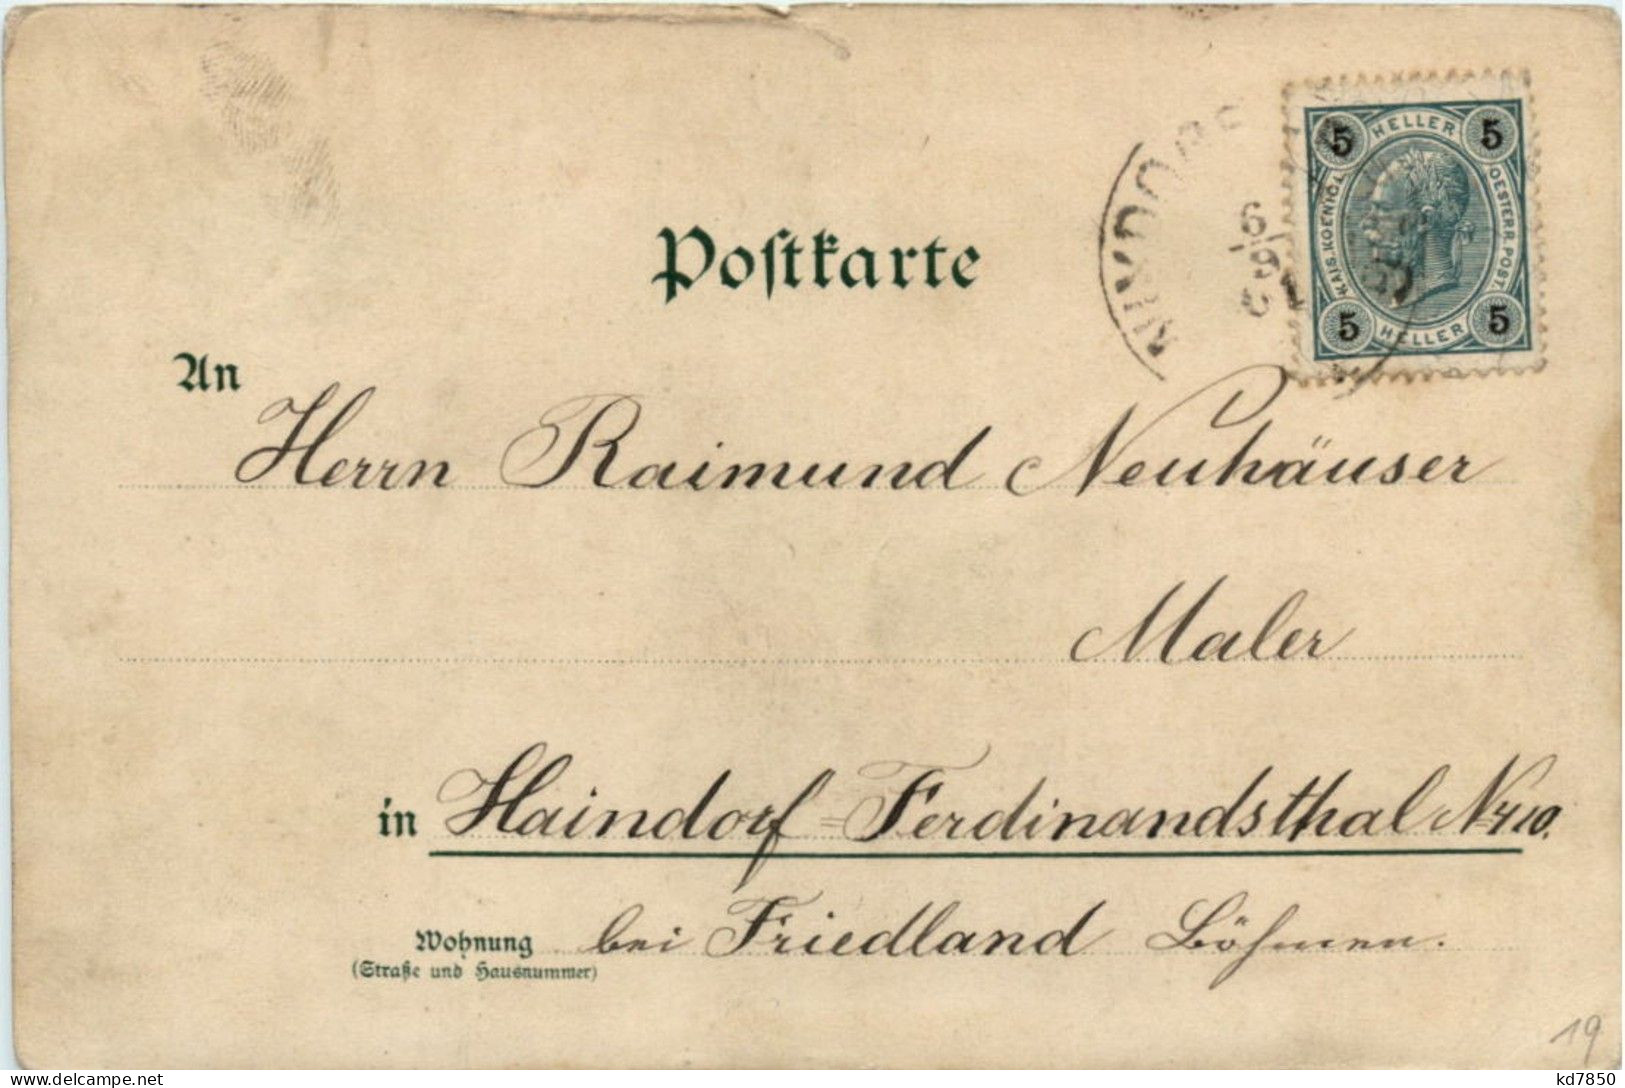 5 HELLER 5
KAIS. KOENIGL. OESTERR. POST.
5 HELLER 5
6
Postkarte
An
Herrn Raimund Neuhäuser
Maler
in Haindorf = Ferdinandsthal No 410.
Wohnung bei Friedland Böhmen.
(Straße und Hausnummer)
19
kd7850